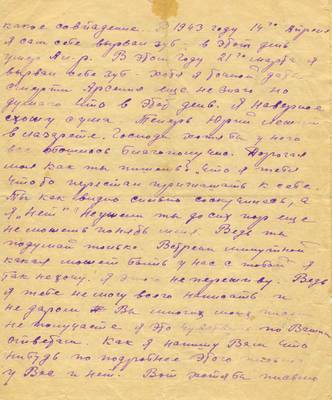 какое совпадение. В 1943 году 14го апреля
я сам себе вырвал зуб - в этот день
умер В этом году 21го марта я
вырвал себе зуб - хотя я точной даты
смерти Арсения еще не знаю но
думаю что в этот день. Я наверное
схожу с ума. Юрий
в лазарете. Господи хотя бы у него
все обошлось благополучно. Дорогая
моя как ты пишешь, что я тебя
что бы перестал приглашать к себе.
Ты как видно сильно соскучилась, а
я „нет" Неужели ты до сих пор еще
не можешь понять меня. Ведь ты
подумай только встреча минутной
какая может быть у нас с тобой я
так не хочу. Я этого не переживу. Ведь
я тебе не могу всего написать и
не даром Вы многих моих писем
не получаете я это чувствую по Вашим
ответам. Как я напишу Вам что
нибудь по подробнее этого письма
у Вас и нет. Вот хотя бы